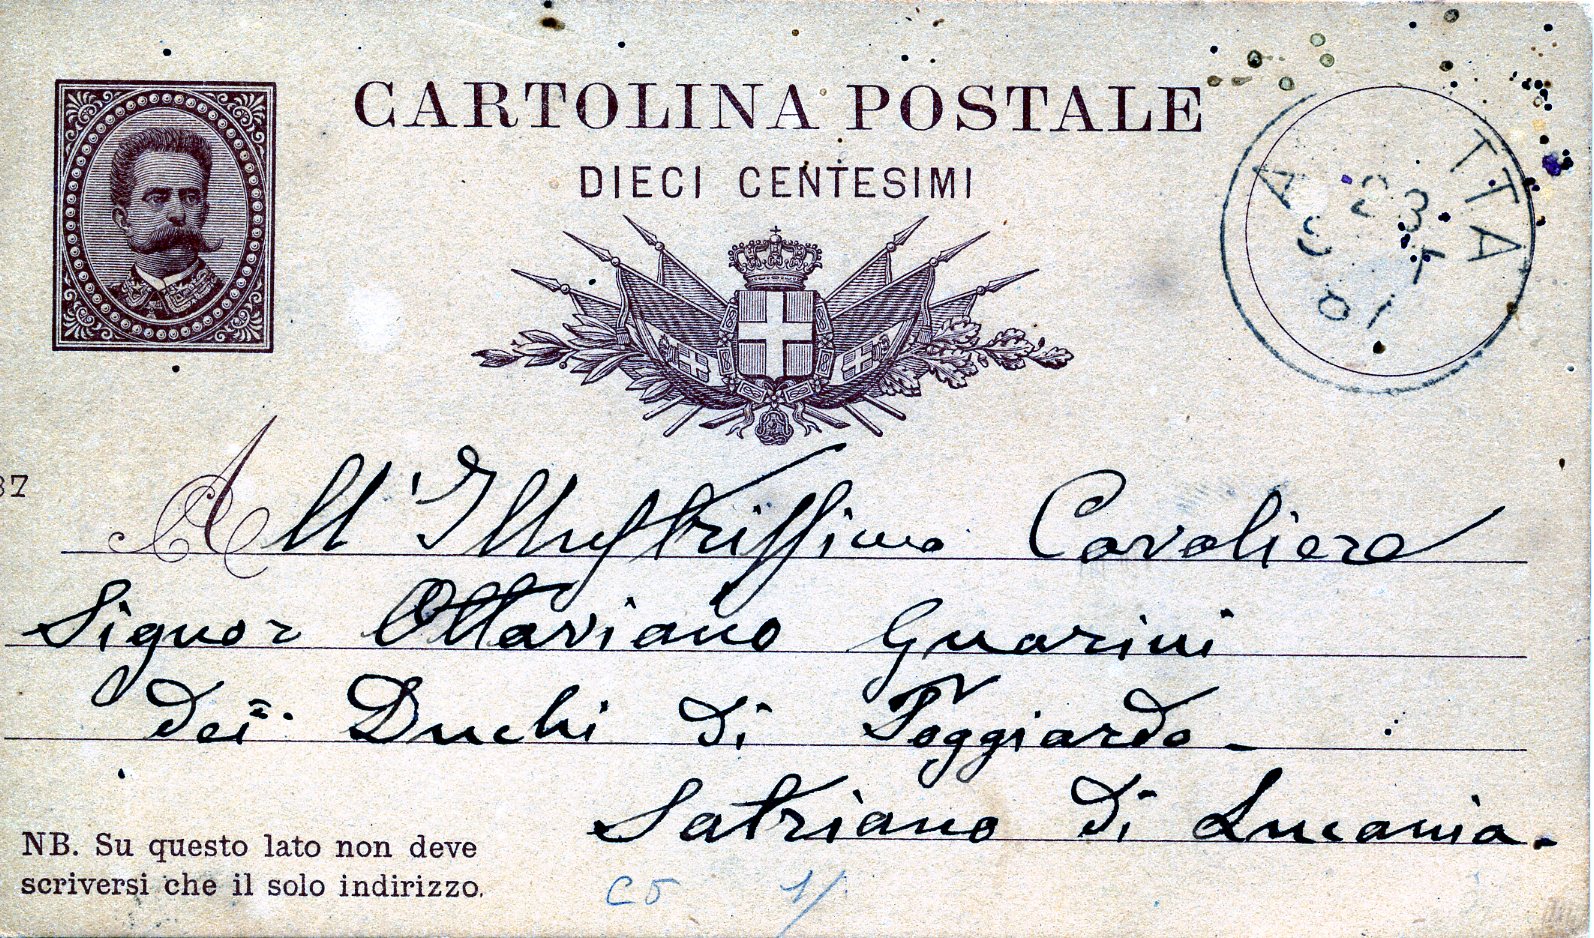 CARTOLINA POSTALE
DIECI CENTESIMI
TTA
87
All' Illustrissimo Cavaliere
Signor Ottaviano Guarini
dei Duchi di Poggiardo
Satriano di Lucania.
NB. Su questo lato non deve
scriversi che il solo indirizzo.